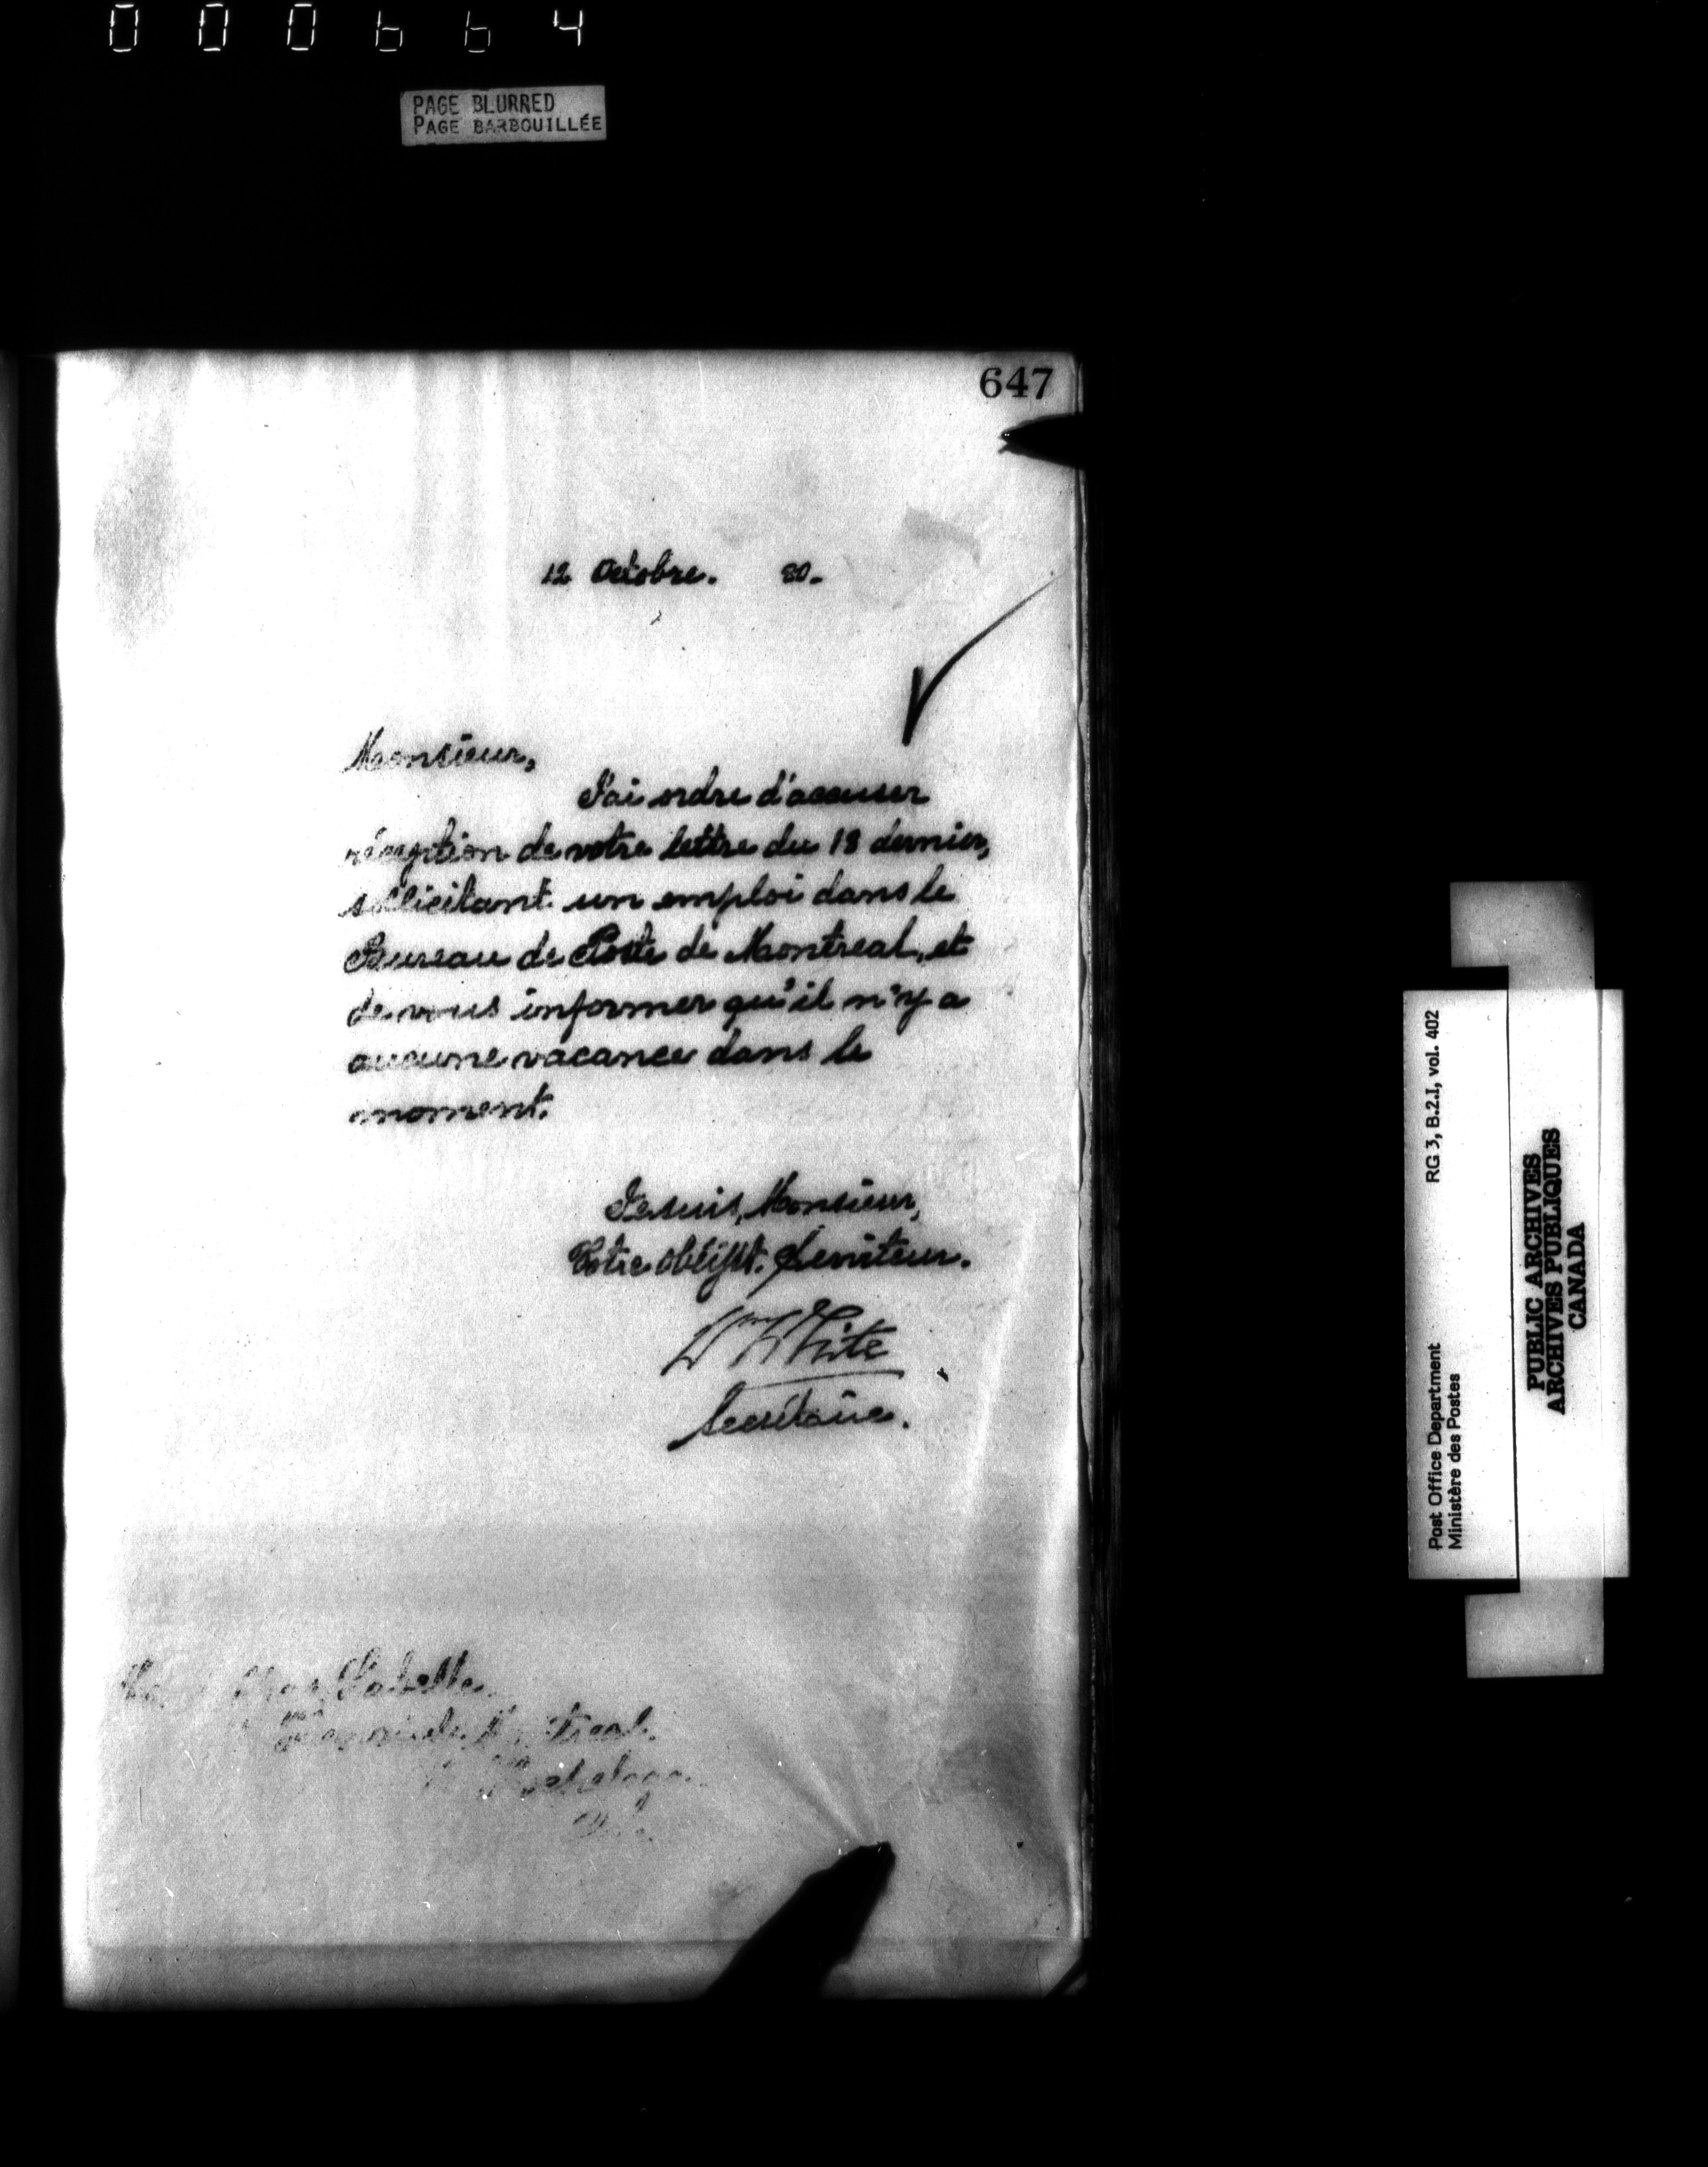 000664
PAGE BLURRED
PAGE BARBOUILLÉE
647
12 Octobre. 80.
Monsieur,
J'ai ordre d'accuser
réception de votre lettre du 18 dernier,
sollicitant un emploi dans le
Bureau de Poste de Montreal, et
de vous informer qu'il n'y a
aucune vacance dans le
moment.
Je suis, Monsieur,
Votre obéisst. Serviteur.
Wm White
Secrétaire.
Chas Labelle
Hochelaga
RG 3, B.2.I, vol. 402
Post Office Department
Ministère des Postes
PUBLIC ARCHIVES
ARCHIVES PUBLIQUES
CANADA